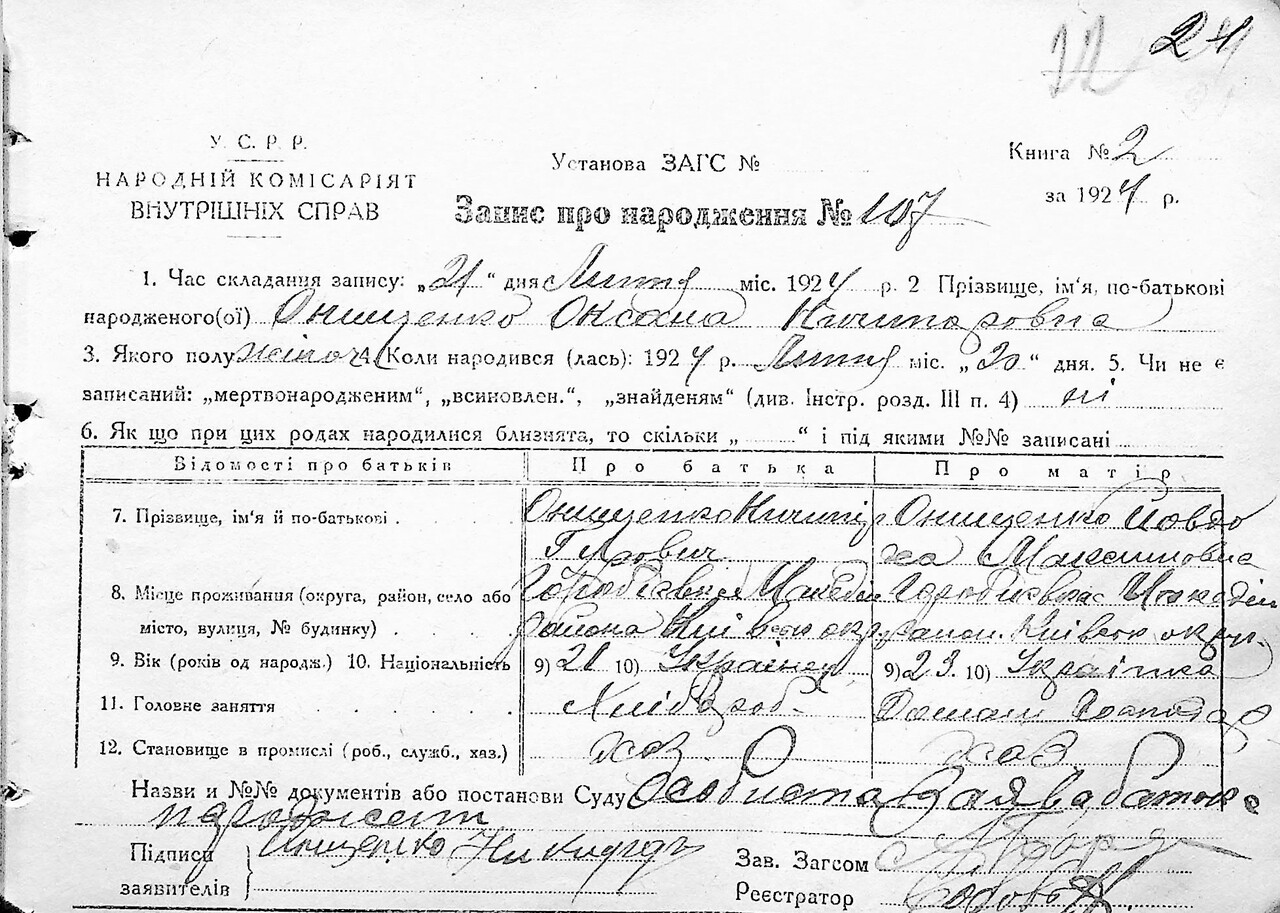 24
У. С. Р. Р.
НАРОДНІЙ КОМІСАРІЯТ
ВНУТРІШНІХ СПРАВ
Установа ЗАГС №
Книга № 2
за 1924 р.
Запис про народження № 107
1. Час складання запису: „21“ дня Лютня міс. 1924 р. 2 Прізвище, ім'я, по-батькові
народженого(ої) Онищенко Оксана Ничипоровна
3. Якого полу жіноч 4. Коли народився (лась): 1924 р. Лютня міс. „20“ дня. 5. Чи не є
записаний: „мертвонародженим“, „всиновлен.“, „знайденям“ (див. Інстр. розд. III п. 4) ні
6. Як що при цих родах народилися близнята, то скільки „ “ і під якими №№ записані
Відомості про батьків Про батька Про матір
7. Прізвище, ім'я й по-батькові Онищенко Ничипір Онищенко Йовдо
ха Максимовна
8. Місце проживання (округа, район, село або
місто, вулиця, № будинку) района Київськ окр. район. Київськ округ.
9. Вік (років од народж.) 10. Національність 9) 21 10) Українец 9) 23. 10) Українка
11. Головне заняття Хлібороб Домаш Господар
12. Становище в промислі (роб., служб., хаз.) хаз. хаз.
Назви и №№ документів або постанови Суду Особиста Заява батька
Підписи
заявителів
Онищенко Никифор
Зав. Загсом
Реєстратор